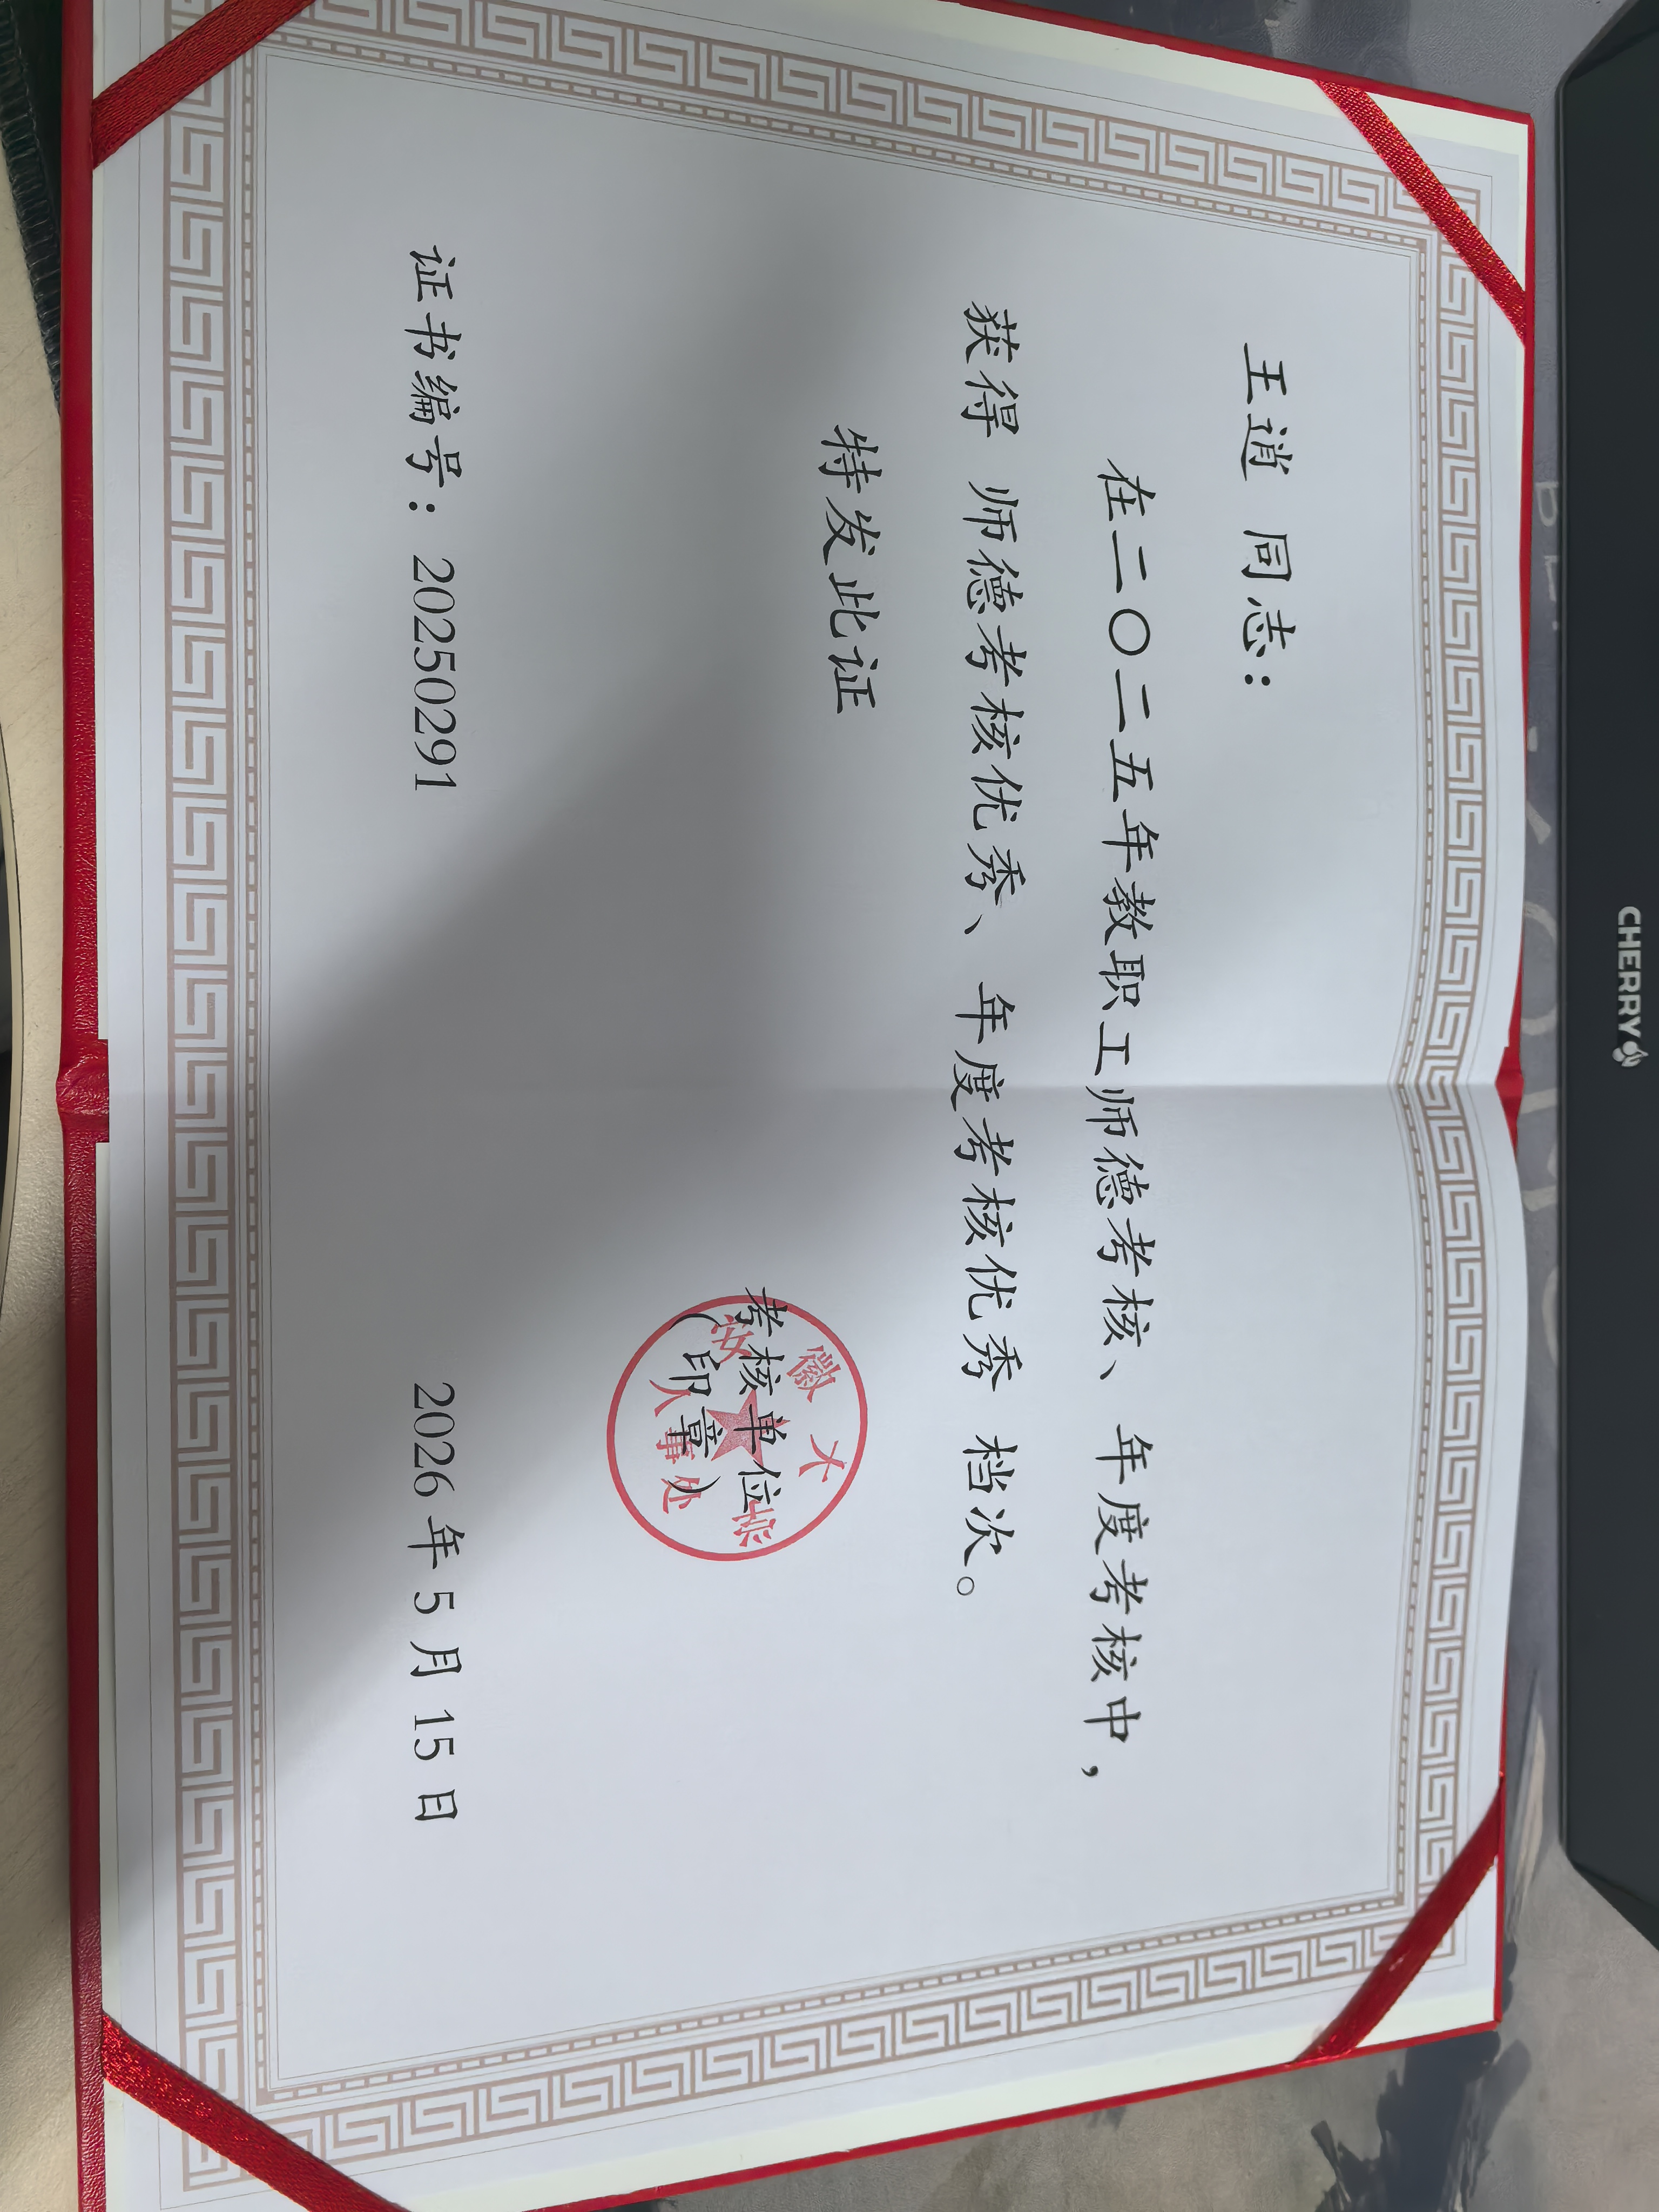 王逍 同志：
在二〇二五年教职工师德考核、年度考核中，
获得 师德考核优秀、年度考核优秀 档次。
特发此证
考核单位
（印章）
人事处
证书编号：20250291
2026年5月15日
CHERRY